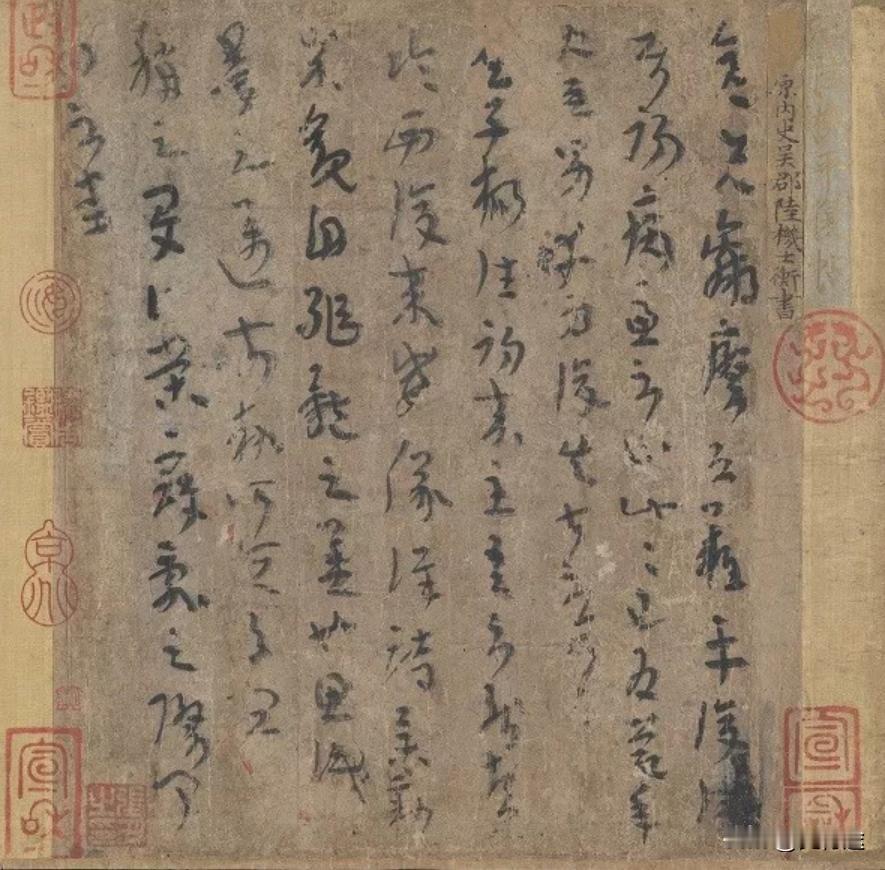 原內史吳郡陸機士衡書
彦先羸瘵恐難平復往屬
初病慮不止此此已為慶承
使唯男幸為復失前憂耳
吳子楊往初來主吾不能盡
臨西復來威儀詳跱舉動
成觀自軀體之美也思識
量之邁前執所恒有宜
稱之夏伯榮寇亂之際聞
問不悉
宣和
政和